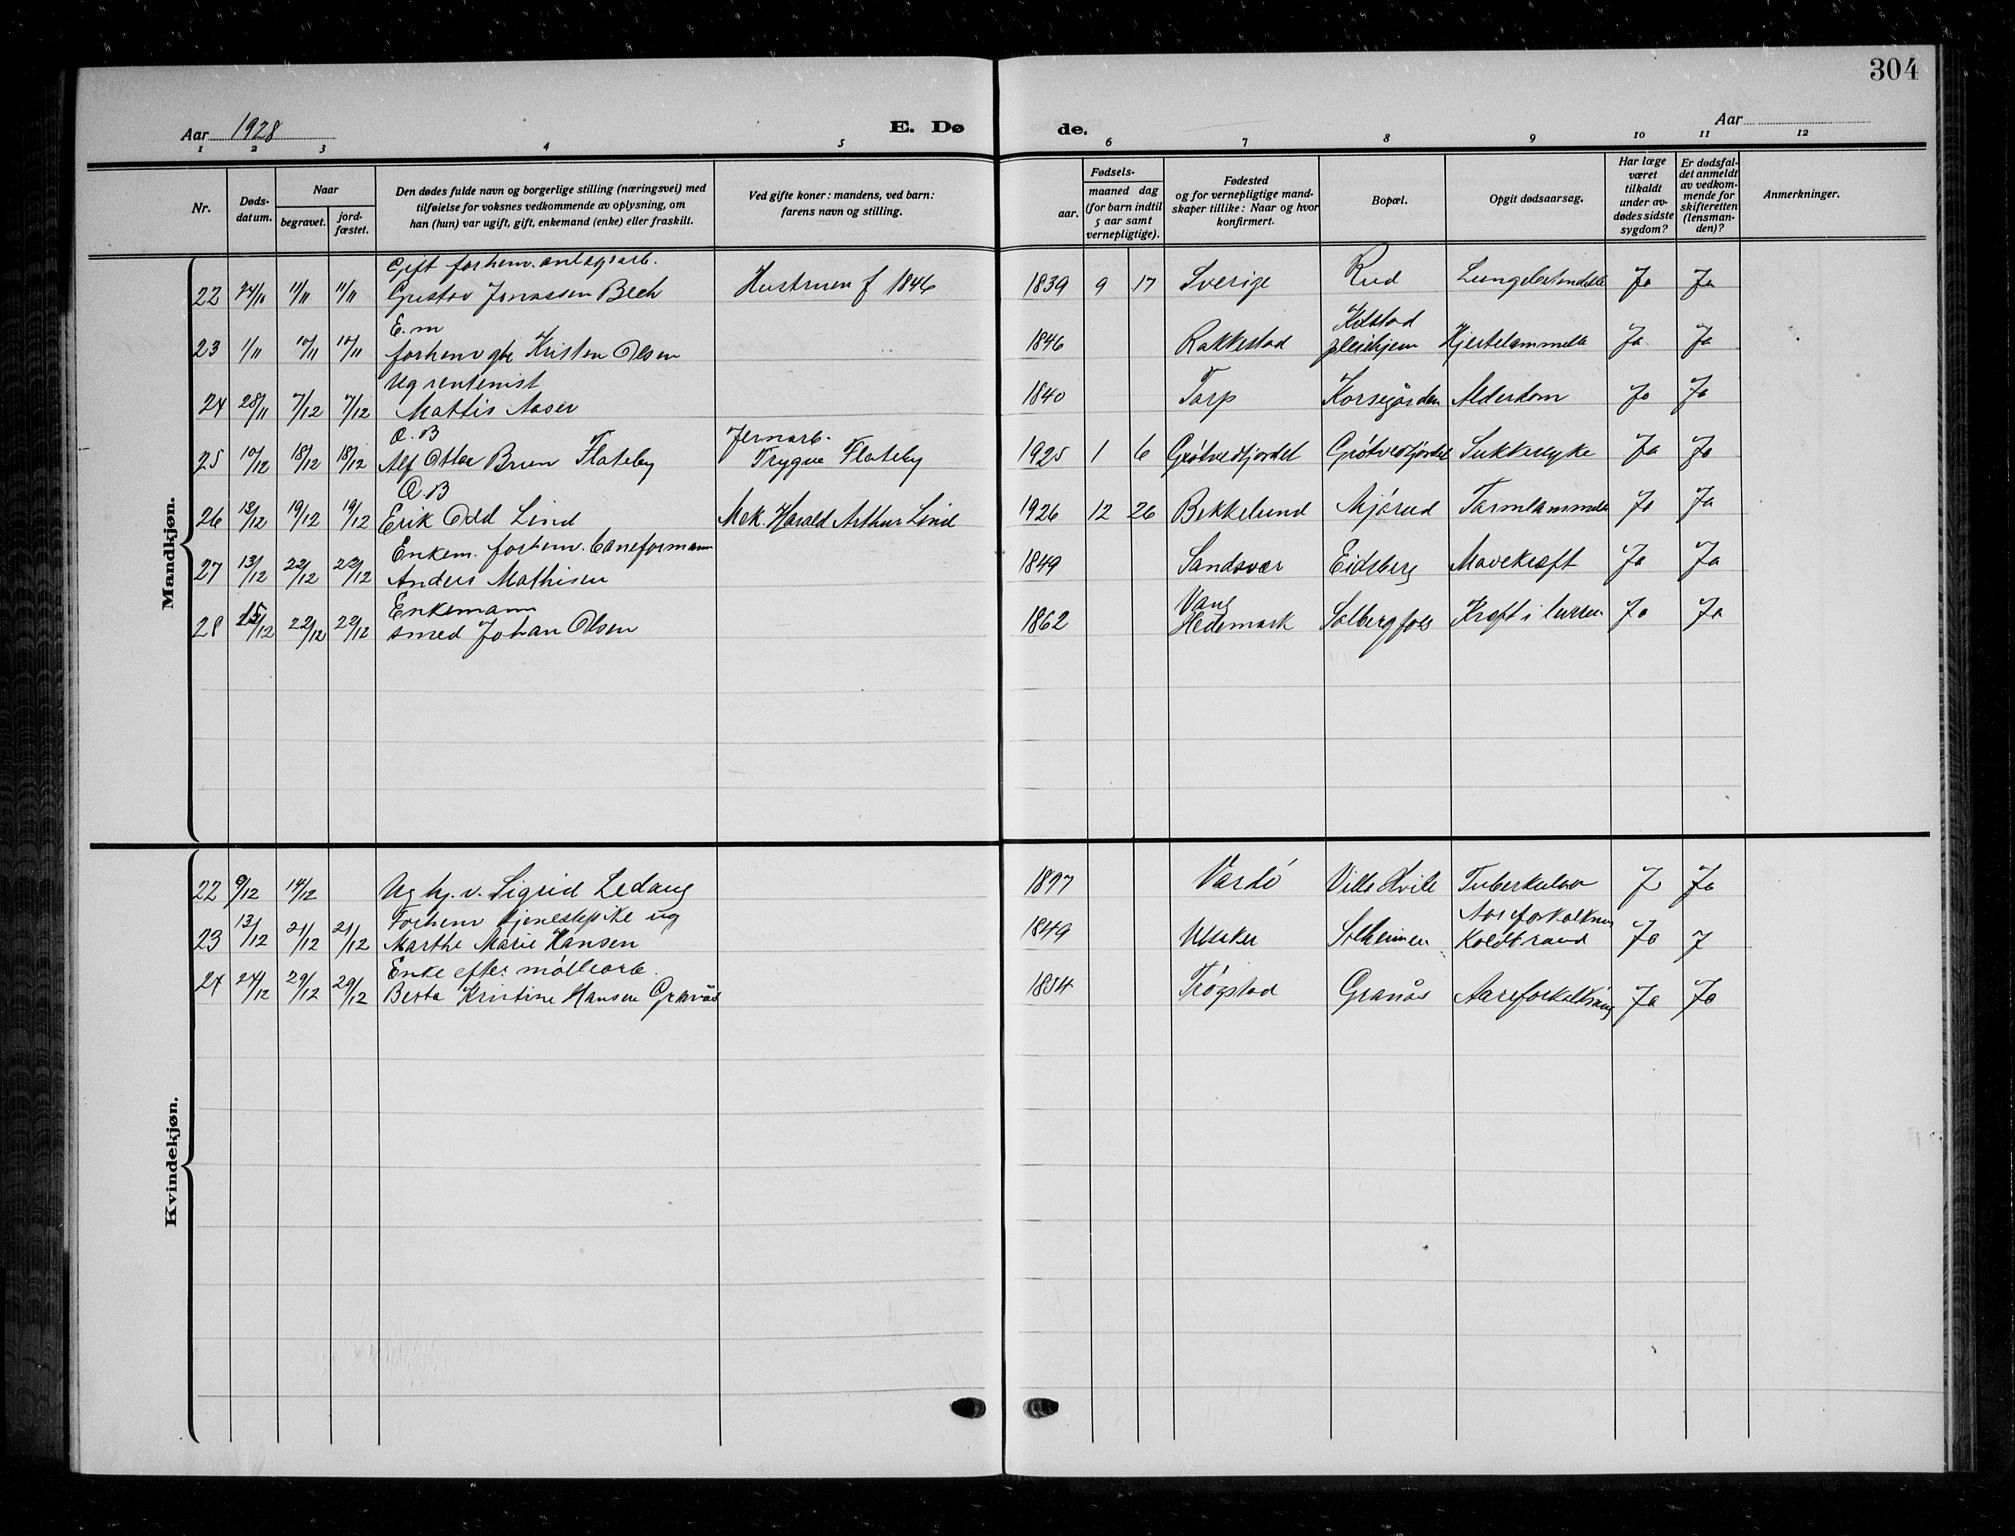 304
Aar 1928 E. Dø de. Aar
1 2 3 4 5 6 7 8 9 10 11 12
Nr. Døds-datum. Naar begravet. jord-fæstet. Den dødes fulde navn og borgerlige stilling (næringsvei) med tilføielse for voksnes vedkommende av oplysning, om han (hun) var ugift, gift, enkemand (enke) eller fraskilt. Ved gifte koner: mandens, ved barn: farens navn og stilling. Fødsels- aar. maaned dag (for barn indtil 5 aar samt vernepligtige). Fødested og for vernepligtige mand-skaper tillike: Naar og hvor konfirmert. Bopæl. Opgit dødsaarsag. Har læge været tilkaldt under av-dødes sidste sygdom? Er dødsfal-det anmeldt av vedkom-mende for skifteretten (lensman-den)? Anmerkninger.
Mandkjøn.
Gift forhenv. anlægsarb.
22 24/10 11/11 11/11 Gustav Jonassen Bech Hustruen f 1846 1839 9 17 Sverige Rud Ja Ja
E.m
23 1/11 10/11 10/11 forhenv gbr Kristen Olsen 1846 Rakkestad pleiehjem Hjertelammelse Ja Ja
Ug rentenist
24 28/11 7/12 7/12 Mattis Aaser 1840 Torp Korsegården Alderdom Ja Ja
O.B Jernarb.
25 10/12 18/12 18/12 Alf Ottar Bruun Flateby Trygve Flateby 1925 1 6 Grøtvedtjordet Grøtvedtjordet Sukkersyke Ja Ja
O.B
26 13/12 19/12 19/12 Erik Odd Lind Mek. Harald Arthur Lind 1926 12 26 Bekkelund Mjørud Tarmlammelse Ja Ja
Enkem. forhenv. baneformann
27 13/12 22/12 22/12 Anders Mathisen 1849 Sandsvær Eidsberg Mavekræft Ja Ja
Enkemann Vang
28 15/12 22/12 22/12 smed Johan Olsen 1862 Hedemark Solbergfoss Kræft i Ja Ja
Kvindekjøn.
22 9/12 14/12 Ug hj. v. Sigrid Ledang 1897 Vardö Villa Hvile Tuberkulose J Ja
Forhenv tjenestepike ug Aareforkalkning
23 13/12 21/12 21/12 Marthe Marie Hansen 1849 Solheimen Koldbrand Ja J
Enke efter möllearb.
24 24/12 29/12 29/12 Berta Kristine Hansen Granås 1854 Trøgstad Granås Aareforkalkning Ja Ja